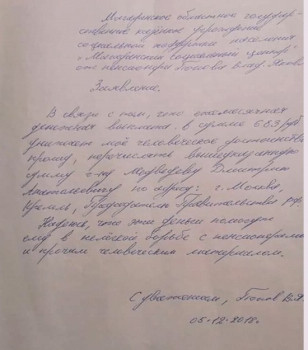 Магаданское областное государ
ственное казенное учреждение
социальной поддержки населения
"Магаданский социальный центр"
от пенсионера Попова Влад.
Заявление.
В связи с тем, что ежемесячная
денежная выплата в сумме 563 руб
унижает моё человеческое достоинство
прошу, перечислять вышеуказанную
сумму г-ну Медведеву Дмитрию
Анатольевичу по адресу: г. Москва,
Кремль, Председателю Правительства РФ.
Надеюсь, что эти деньги помогут
ему в нелёгкой борьбе с пенсионерами
и прочим человеческим материалом.
С уважением, Попов В.Я.
05.12.2018.